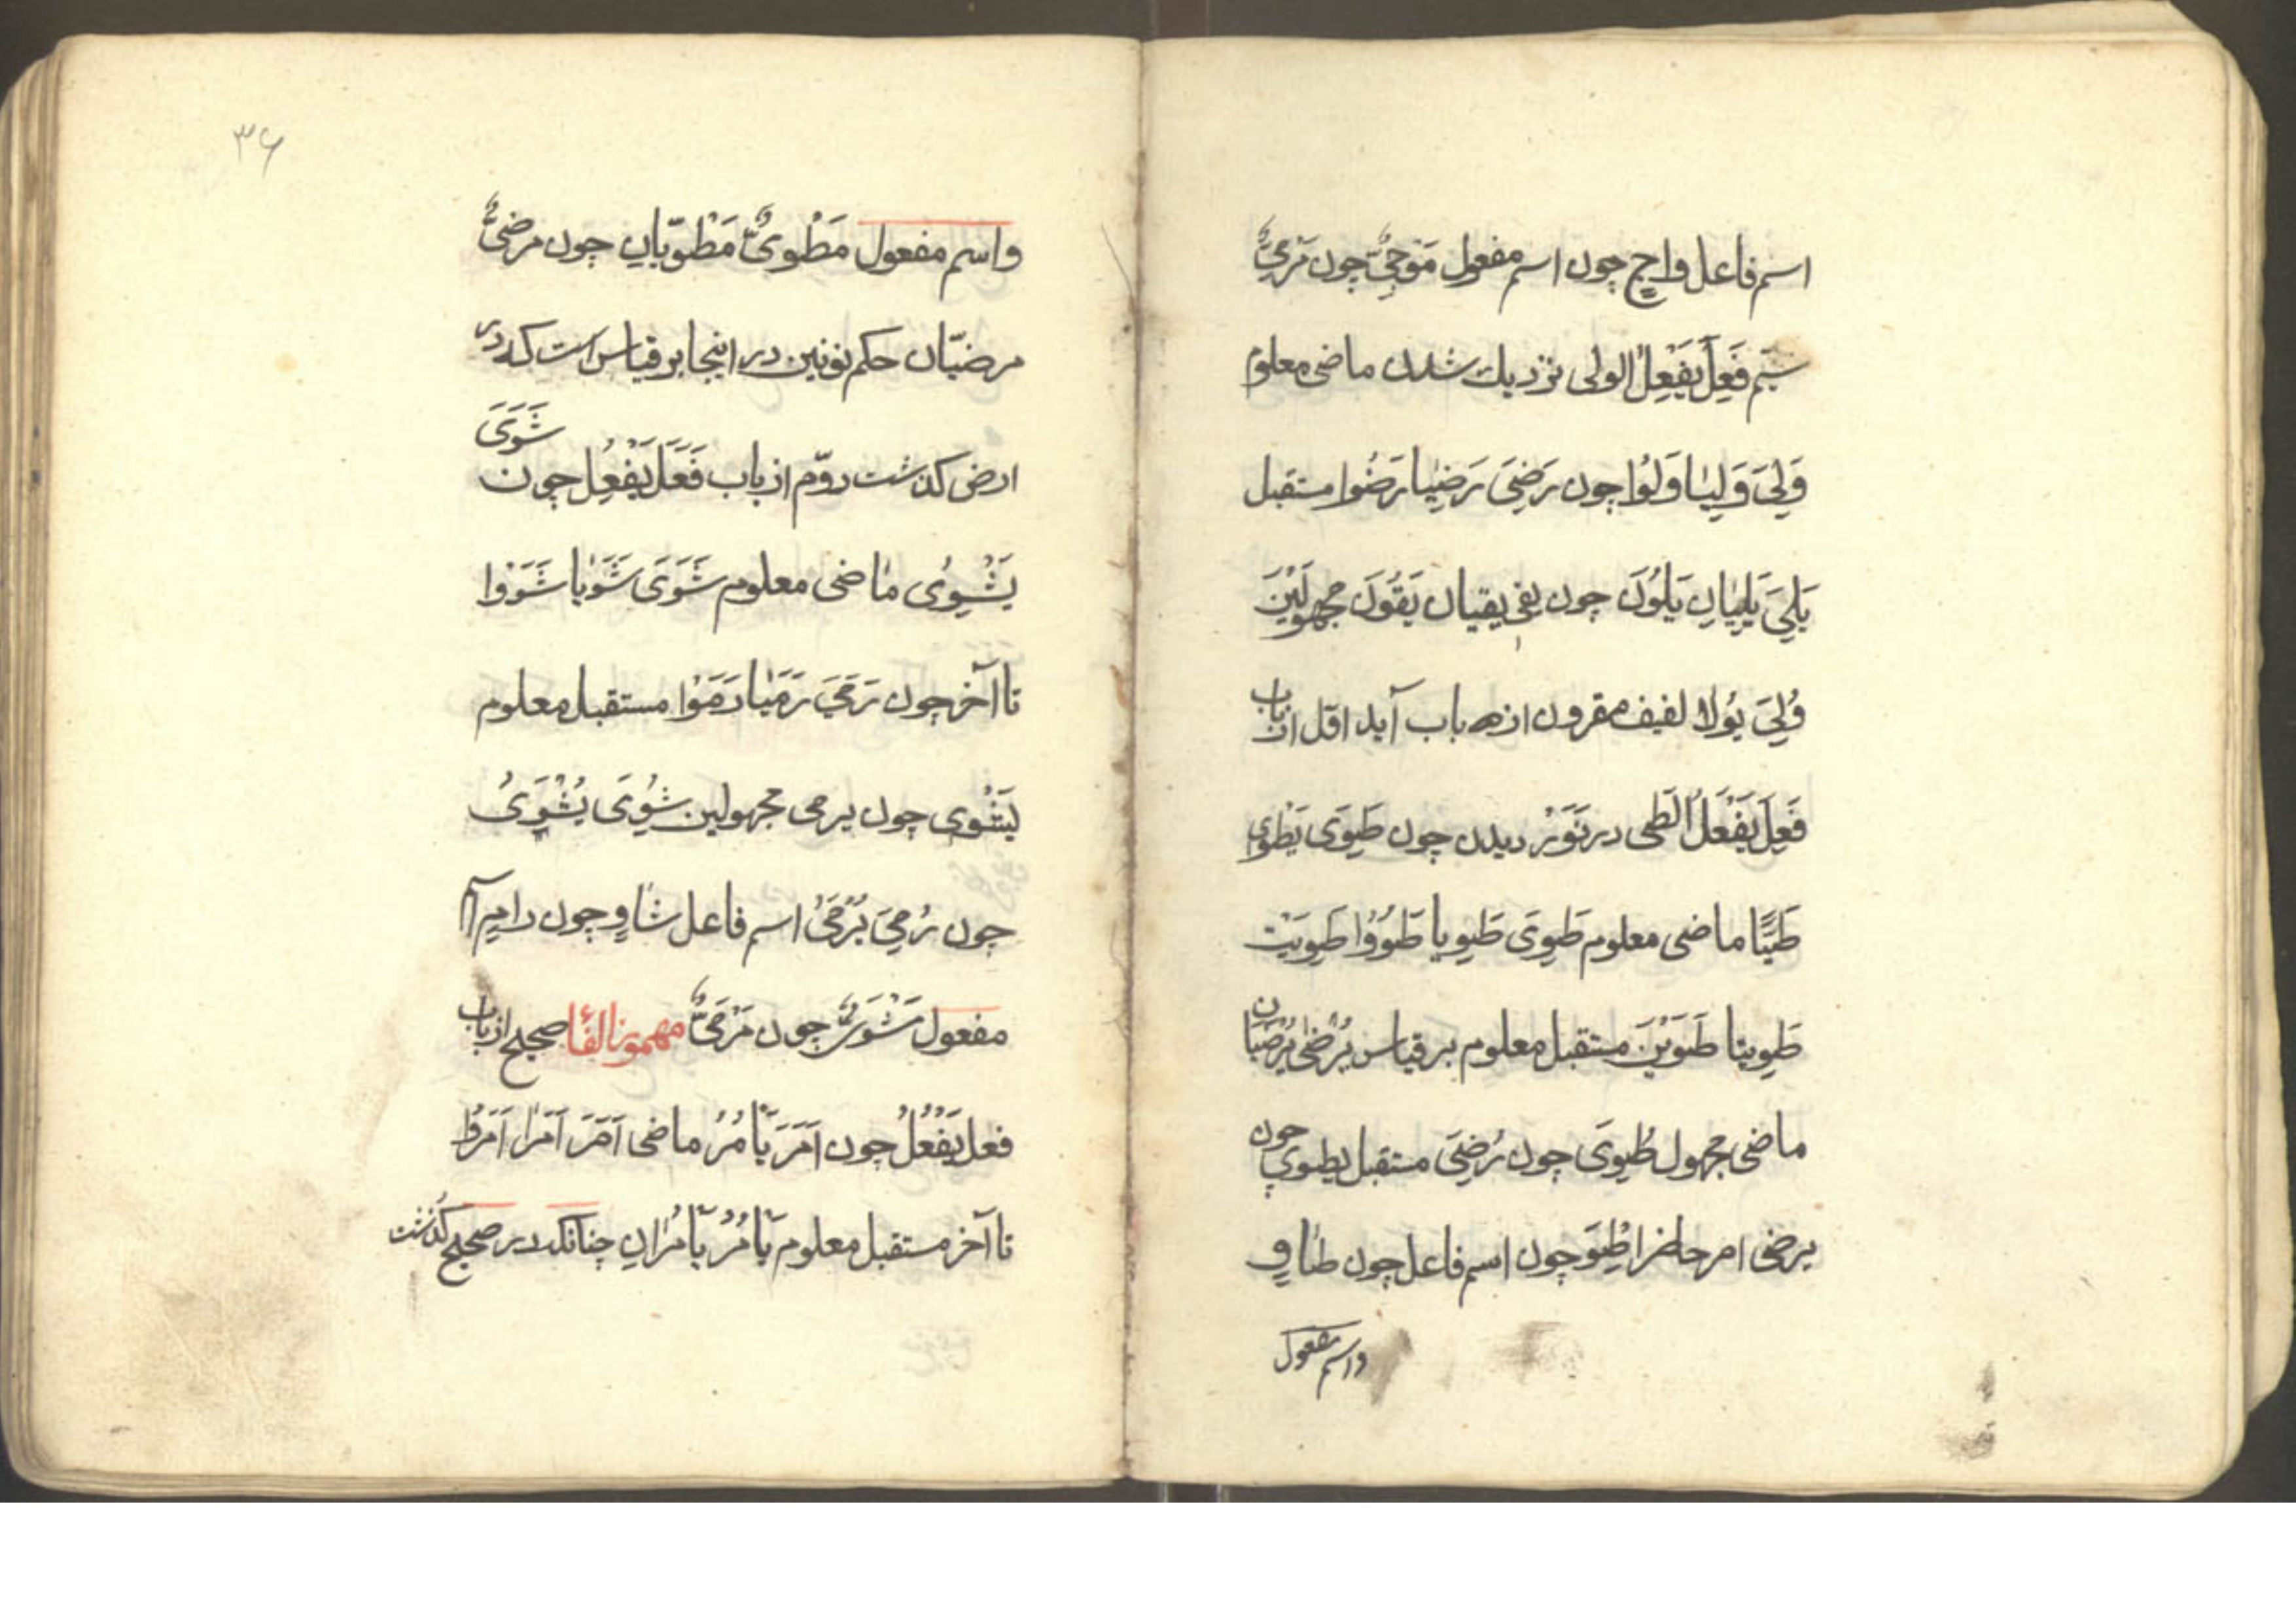 اسم فاعل واجٍ چون اسم مفعول مَوْجِیٌّ چون مَرْمِیٌّ
سیّم فَعِلَ یَفْعِلُ الولی نزدیك شدن ماضی معلوم
وَلِیَ وَلِیَا وَلُوْا چون رَضِیَ رَضِیَا رَضُوا مستقبل
یَلِیَ یَلِیَانِ یَلُوْنَ چون یقی یقیان یَقُوْنَ مجهولَیْنَ
وُلِیَ یُولَا لفیف مقرون از باب آید اوّل از باب
فَعِلَ یَفْعَلُ الَطی در دیدن چون طَیِوَی یَطْوی
طَیًّا ماضی معلوم طَیِوَی طَیِویا طَیوُوْا طَیِویَتْ
طَیِویتا طَیَوَیْنَ مستقبل معلوم بر قیاس یُرْضٰی یُرْضَیَانِ
ماضی مجهول طُیِویَ چون رُضِیَ مستقبل یطیوی چون
یرضی امر حاضر اطْیِوَ چون اسم فاعل چون طَاوٍ
واسم مفعول
۳۶
واسم مفعول مَطْوِیٌّ مَطْوِیّانِ چون مرضیٌّ
مرضیّان حکم نونین در اینجا بر قیاس است که در
ارض کذشت دوّم از باب فَعَلَ یَفْعِلُ چون شَوَیَ
یَشْوِیُ ماضی معلوم شَوَیَ شَوَیا شَوَوْا
تا آخر چون رَمَیَ رَمَیَا رَمَوْا مستقبل معلوم
یَشْوی چون یرمی مجهولین شُوِیَ یُشْوَیُ
چون رُمِیَ یُرْمَیُ اسم فاعل شاوٍ چون رامٍ اسم
مفعول مَشْوَیٌّ چون مَرْمَیٌّ مهموز الفاء صحیح از باب
فعل یَفْعُلُ چون اَمَرَ یَأمُرُ ماضی اَمَرَ اَمَرَا اَمَرُوْا
تا آخر مستقبل معلوم یَأمُرُ یَأمُرَانِ چنانکه در صحیح کُذشت